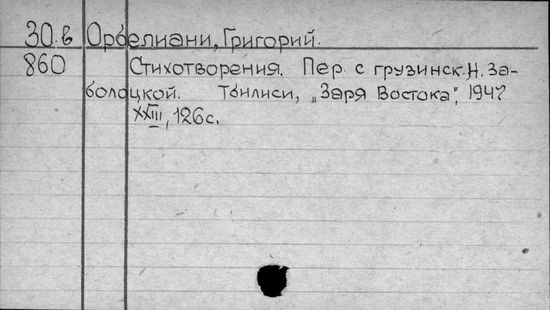 30.в Орбелиани, Григорий.
860 Стихотворения. Пер. с грузинск. Н. За-
болоцкой. Тбилиси, „Заря Востока”, 1947
XXIII, 126с.